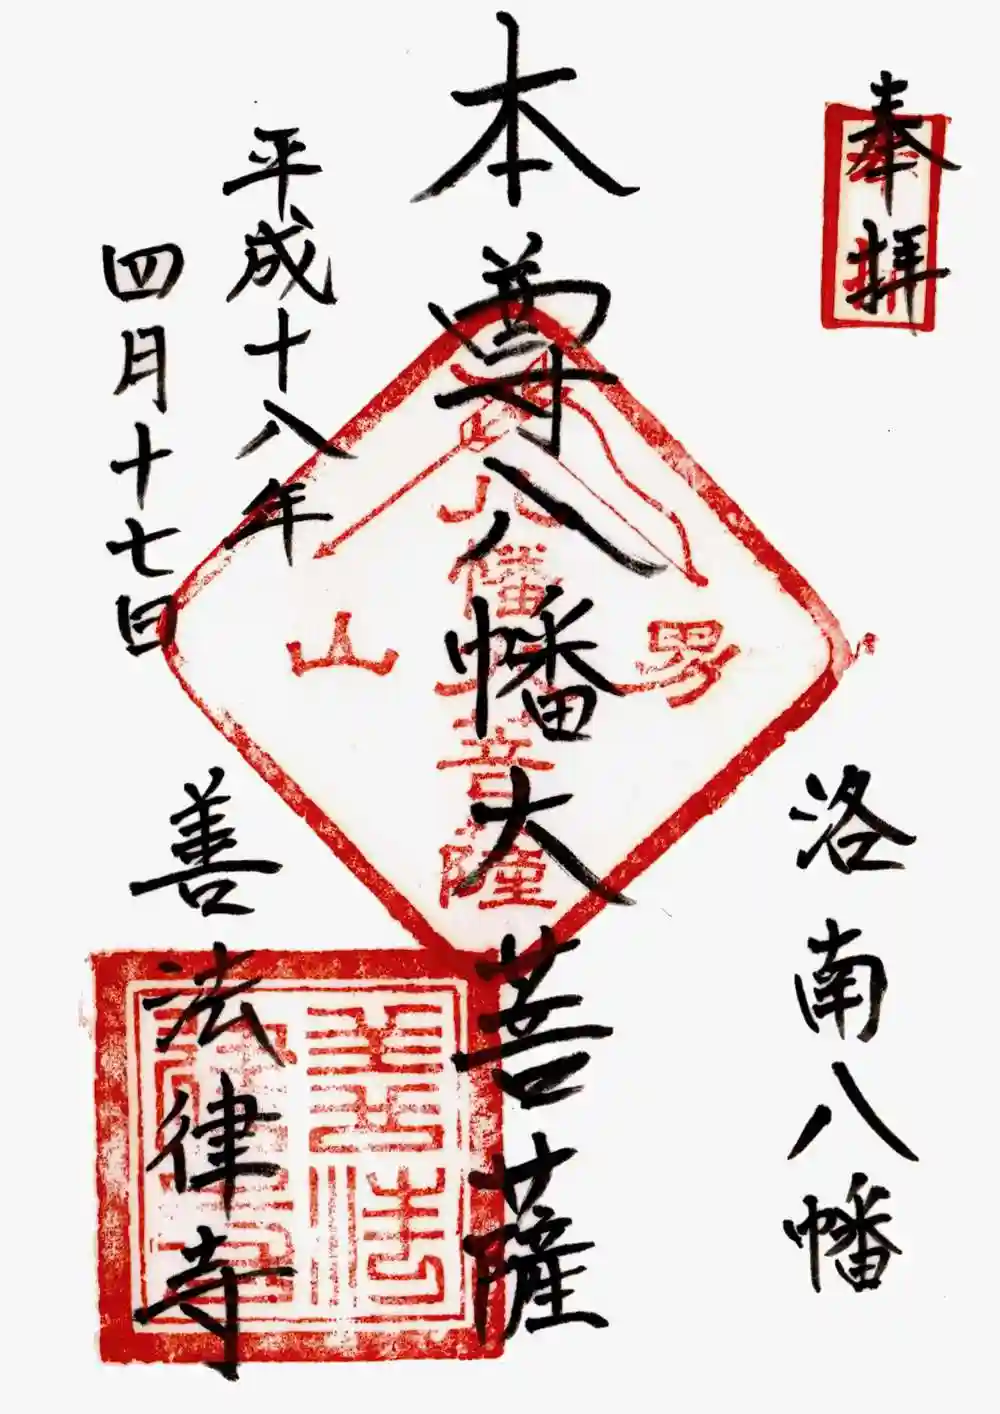 奉拝
洛南八幡
本尊八幡大菩薩
平成十八年
四月十七日
善法律寺
奉拝
男
山
八幡大菩薩
善法律寺